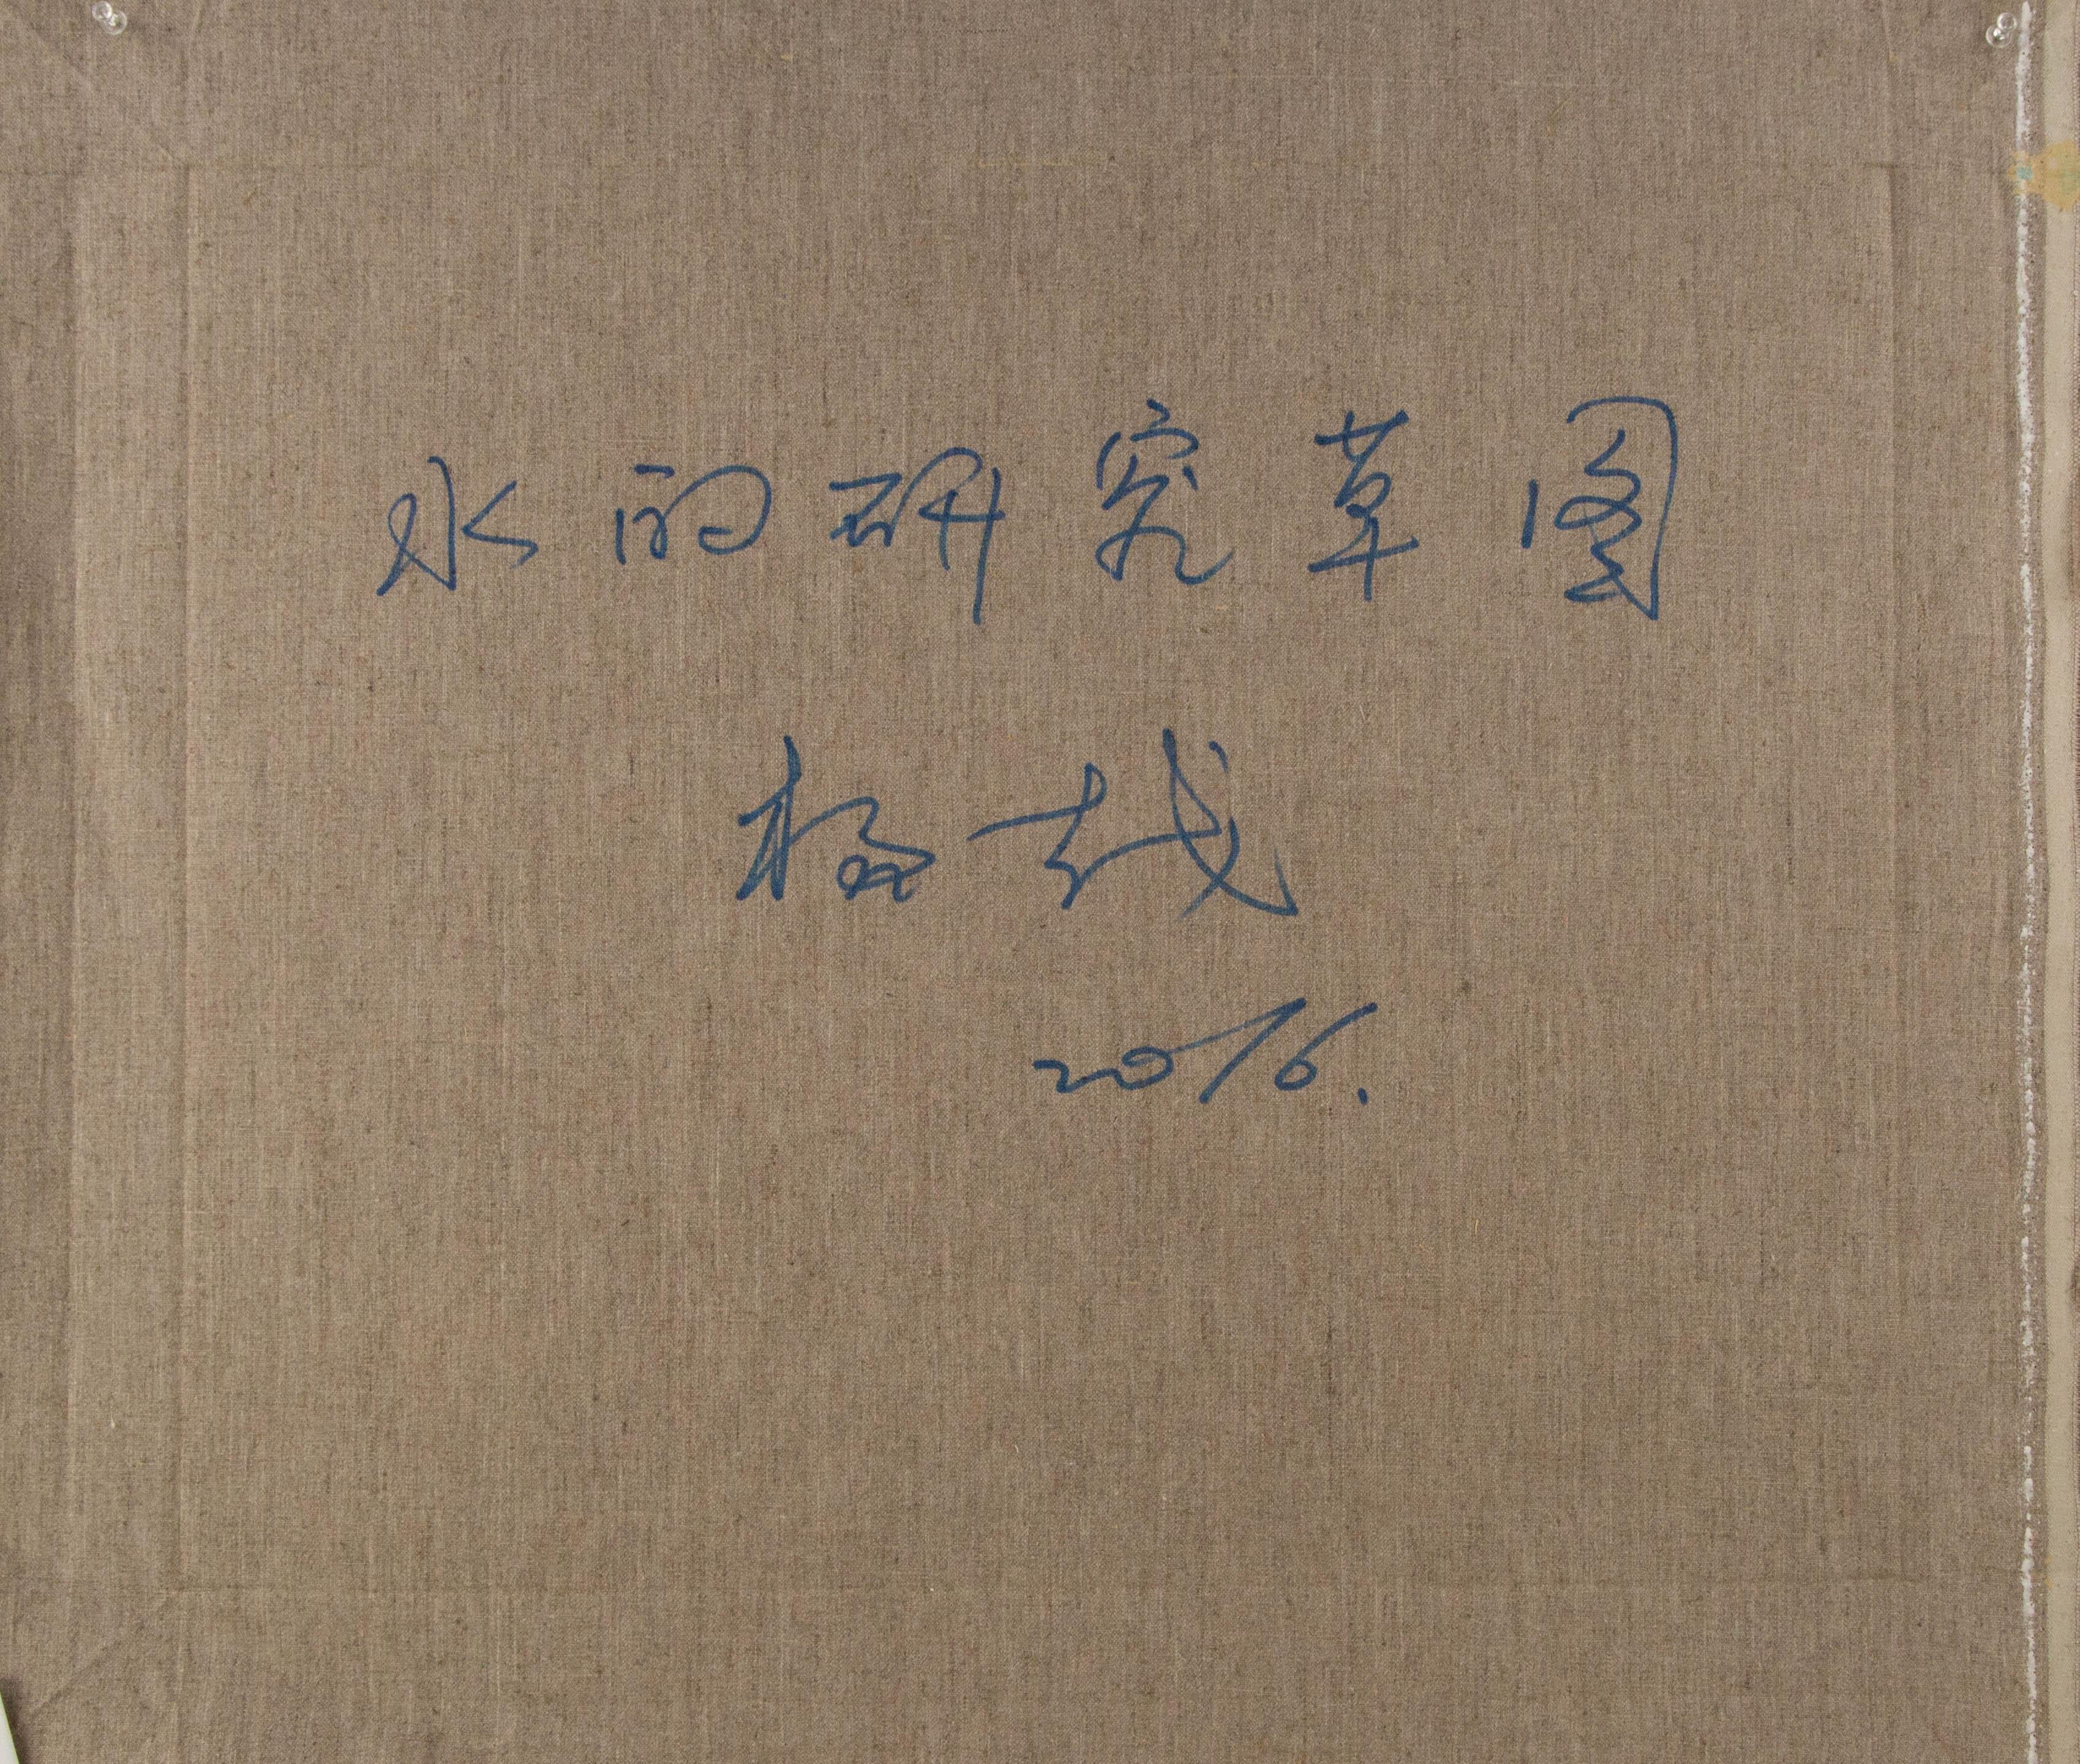 水的研究草图
杨越
2016.